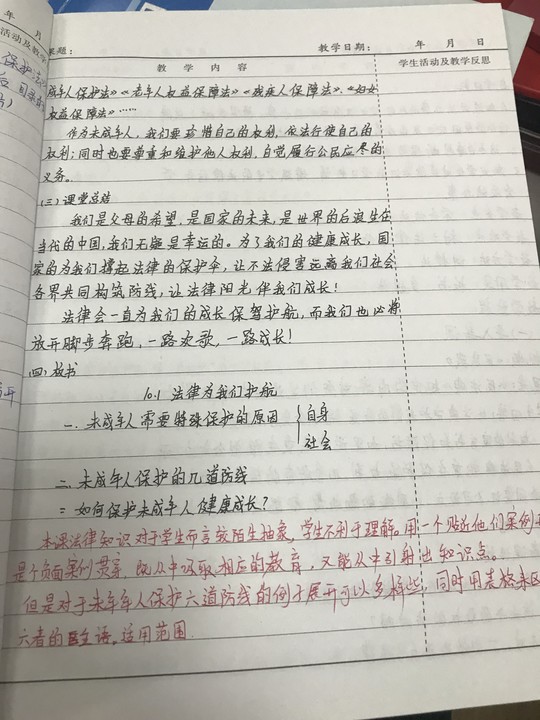 年 月
活动及教学
课题： 教学日期： 年 月 日
教 学 内 容 学生活动及教学反思
成年人保护法》《老年人权益保障法》《残疾人保障法》、《妇女
权益保障法》……
作为未成年人，我们要珍惜自己的权利，依法行使自己的
权利；同时也要尊重和维护他人权利，自觉履行公民应尽的
义务。
(三)课堂总结
我们是父母的希望，是国家的未来，是世界的后浪生在
当代的中国，我们无疑是幸运的。为了我们的健康成长，国
家的为我们撑起法律的保护伞，让不法侵害远离我们社会
各界共同构筑防线，让法律阳光伴我们成长！
法律会一直为我们的成长保驾护航，而我们也必将
放开脚步奔跑，一路欢歌，一路成长！
四、板书
10.1 法律为我们护航
一. 未成年人需要特殊保护的原因 { 自身
社会
二. 未成年人保护的几道防线
= 如何保护未成年人健康成长？
本课法律知识对于学生而言较陌生抽象，学生不利于理解。用一个贴近他们案例
是个负面案例贯穿，既从中吸取相应的教育，又能从中引射出知识点。
但是对于未年年人保护六道防线的例子展开可以多样些，同时用表格来区
六者的 主语、适用范围.